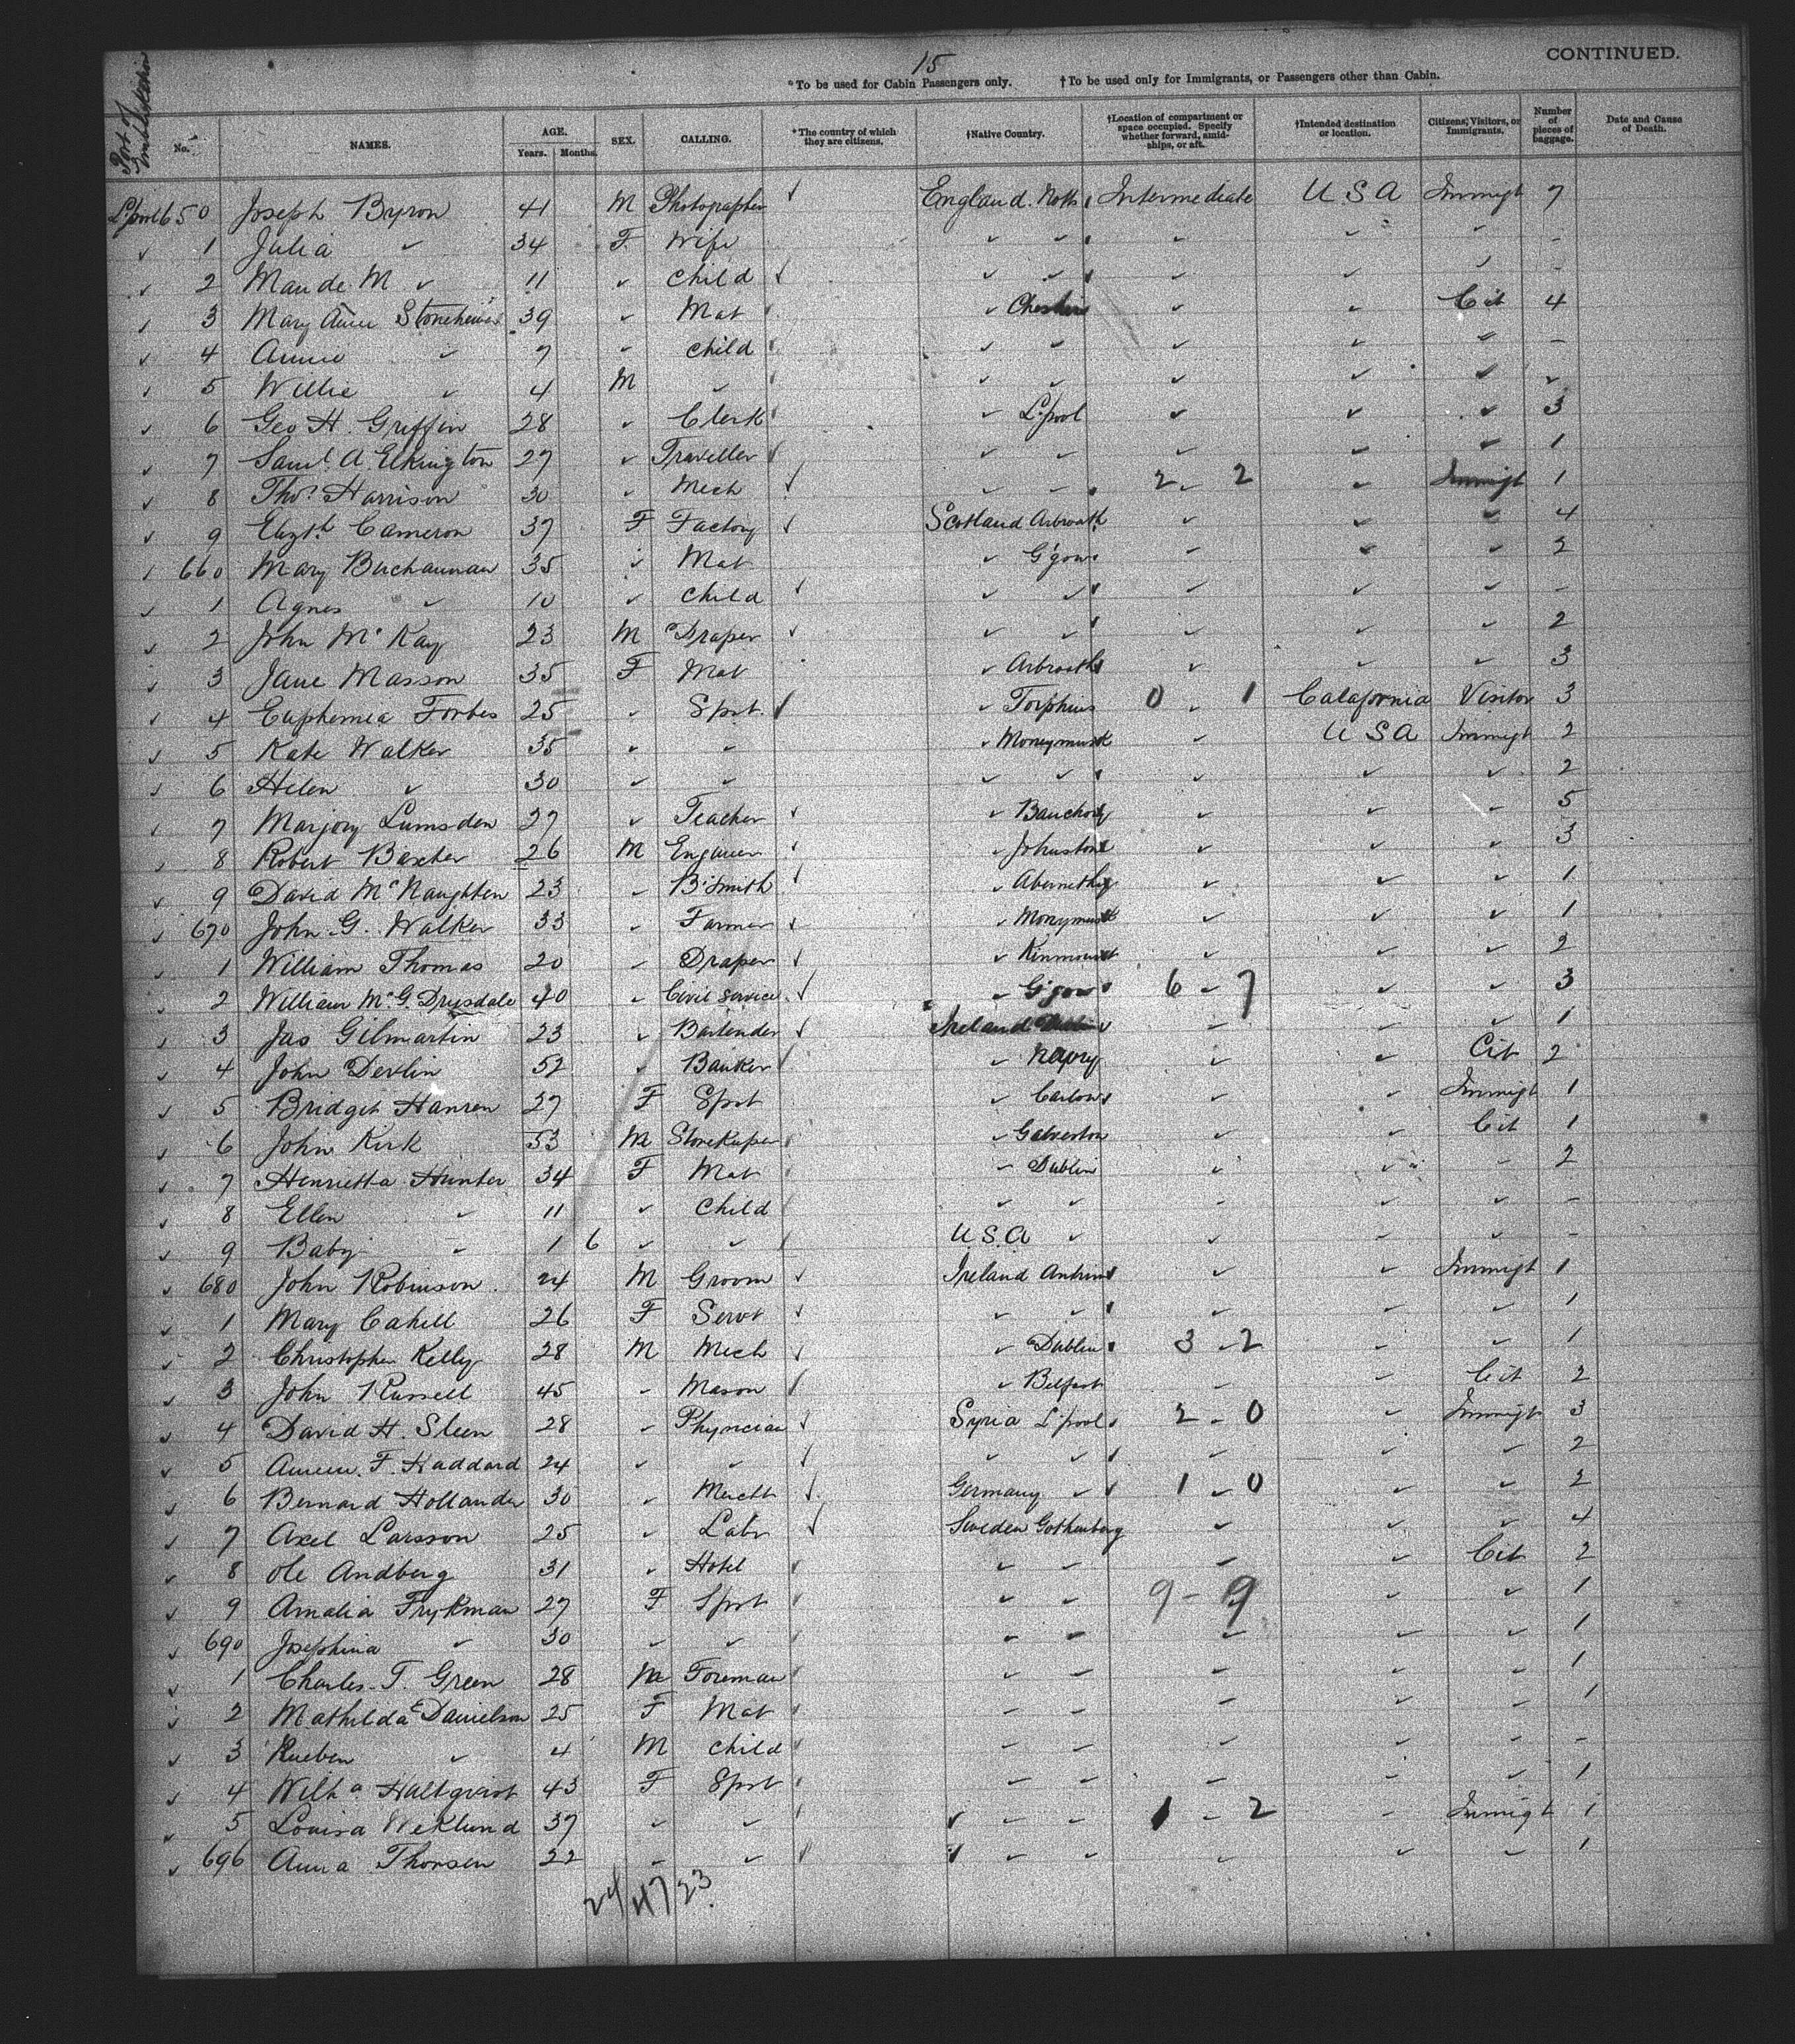 15
CONTINUED.
*To be used for Cabin Passengers only. †To be used only for Immigrants, or Passengers other than Cabin.
Port of Embarkation No. NAMES. AGE. Years. Months. SEX. CALLING. *The country of which they are citizens. †Native Country. †Location of compartment or space occupied. Specify whether forward, amidships, or aft. †Intended destination or location. Citizens, Visitors, or Immigrants. Number of pieces of baggage. Date and Cause of Death.
L'pool 650 Joseph Byron 41 M Photographer ✓ England. Notts Intermediate U S A Immigt 7
✓ 1 Julia ✓ 34 F Wife ✓ ✓ ✓ ✓ ✓ -
✓ 2 Maude M ✓ 11 ✓ Child ✓ ✓ ✓ ✓ ✓ ✓ -
✓ 3 Mary Anne 39 ✓ Mat ✓ Cheshire ✓ ✓ Cit 4
✓ 4 Annie ✓ 7 ✓ Child ✓ ✓ ✓ ✓ ✓ -
✓ 5 Willie ✓ 4 M ✓ ✓ ✓ ✓ ✓ ✓ ✓
✓ 6 Geo H. Griffin 28 ✓ Clerk ✓ L'pool ✓ ✓ ✓ 3
✓ 7 Saml. A. Elkington 27 ✓ Traveller ✓ ✓ ✓ ✓ ✓ 1
✓ 8 Thos. Harrison 30 ✓ Mech ✓ ✓ ✓ 2 - 2 ✓ Immigt 1
✓ 9 Elizth. Cameron 37 F Factory ✓ Scotland Arbroath ✓ ✓ ✓ 4
✓ 660 Mary Buchannan 35 ✓ Mat ✓ G'gow ✓ ✓ ✓ 2
✓ 1 Agnes ✓ 10 ✓ Child ✓ ✓ ✓ ✓ ✓ ✓ -
✓ 2 John McKay 23 M Draper ✓ ✓ ✓ ✓ ✓ ✓ 2
✓ 3 Jane Masson 35 F Mat ✓ Arbroath ✓ ✓ ✓ 3
✓ 4 Euphemia Forbes 25 ✓ Spst. ✓ ✓ Torphins 0 ✓ 1 Calafornia Visitor 3
✓ 5 Kate Walker 35 ✓ ✓ ✓ Moneymusk ✓ U S A Immigt 2
✓ 6 Helen ✓ 30 ✓ ✓ ✓ ✓ ✓ ✓ ✓ 2
✓ 7 Marjory Lumsden 27 ✓ Teacher ✓ ✓ Banchory ✓ ✓ ✓ 5
✓ 8 Robert Baxter 26 M Engineer ✓ ✓ Johnstone ✓ ✓ ✓ 3
✓ 9 David McNaughten 23 ✓ B'Smith ✓ ✓ Abernethy ✓ ✓ ✓ 1
✓ 670 John G. Walker 33 ✓ Farmer ✓ ✓ Monymusk ✓ ✓ ✓ 1
✓ 1 William Thomas 20 ✓ Draper ✓ ✓ Kinmount ✓ ✓ ✓ 2
✓ 2 William McG. Drysdale 40 ✓ Civil Service ✓ ✓ G'gow 6 - 7 ✓ ✓ 3
✓ 3 Jas Gilmartin 23 ✓ Bartender ✓ Ireland ✓ ✓ ✓ 1
✓ 4 John Devlin 52 ✓ Banker ✓ ✓ Newry ✓ ✓ Cit 2
✓ 5 Bridget Hanren 27 F Spst ✓ Carlow ✓ ✓ Immigt 1
✓ 6 John Kirk 53 M Storekeeper ✓ Galveston ✓ ✓ Cit 1
✓ 7 Henrietta Hunter 34 F Mat ✓ Dublin ✓ ✓ ✓ 2
✓ 8 Ellen ✓ 11 ✓ Child ✓ ✓ ✓ ✓ ✓ -
✓ 9 Baby ✓ 1 6 ✓ ✓ U.S.A ✓ ✓ ✓ ✓ -
✓ 680 John Robinson 24 M Groom ✓ Ireland Antrim ✓ ✓ Immigt 1
✓ 1 Mary Cahill 26 F Servt ✓ ✓ ✓ ✓ ✓ ✓ 1
✓ 2 Christopher Kelly 28 M Mech ✓ ✓ Dublin 3 - 2 ✓ ✓ 1
✓ 3 John Russell 45 ✓ Mason ✓ ✓ Belfast ✓ ✓ Cit 2
✓ 4 David H. Sleen 28 ✓ Physician ✓ Syria L'pool 2 - 0 ✓ Immigt 3
✓ 5 Ameen. F. Haddard 24 ✓ ✓ ✓ ✓ ✓ ✓ ✓ ✓ 2
✓ 6 Bernard Hollander 30 ✓ Mercht ✓ Germany ✓ 1 - 0 ✓ ✓ 2
✓ 7 Axel Larsson 25 ✓ Labr ✓ Sweden Gothenburg ✓ ✓ ✓ 4
✓ 8 Ole Andberg 31 ✓ Hotel ✓ ✓ ✓ ✓ Cit 2
✓ 9 Amalia Frykman 27 F Spst ✓ ✓ 9 - 9 ✓ ✓ 1
✓ 690 Josephina ✓ 30 ✓ ✓ ✓ ✓ ✓ ✓ ✓ 1
✓ 1 Charles. T. Green 28 M Foreman ✓ ✓ ✓ ✓ ✓ 1
✓ 2 Mathilda Danielson 25 F Mat ✓ ✓ ✓ ✓ ✓ 1
✓ 3 Rueben ✓ 4 M Child ✓ ✓ ✓ ✓ ✓ -
✓ 4 Wilha Hultqvist 43 F Spst ✓ ✓ ✓ ✓ ✓ 1
✓ 5 Louisa Weklund 37 ✓ ✓ ✓ ✓ ✓ 1 - 2 ✓ Immigt 1
✓ 696 Anna Thorsen 22 ✓ ✓ ✓ ✓ ✓ ✓ ✓ ✓ 1
24/47/23